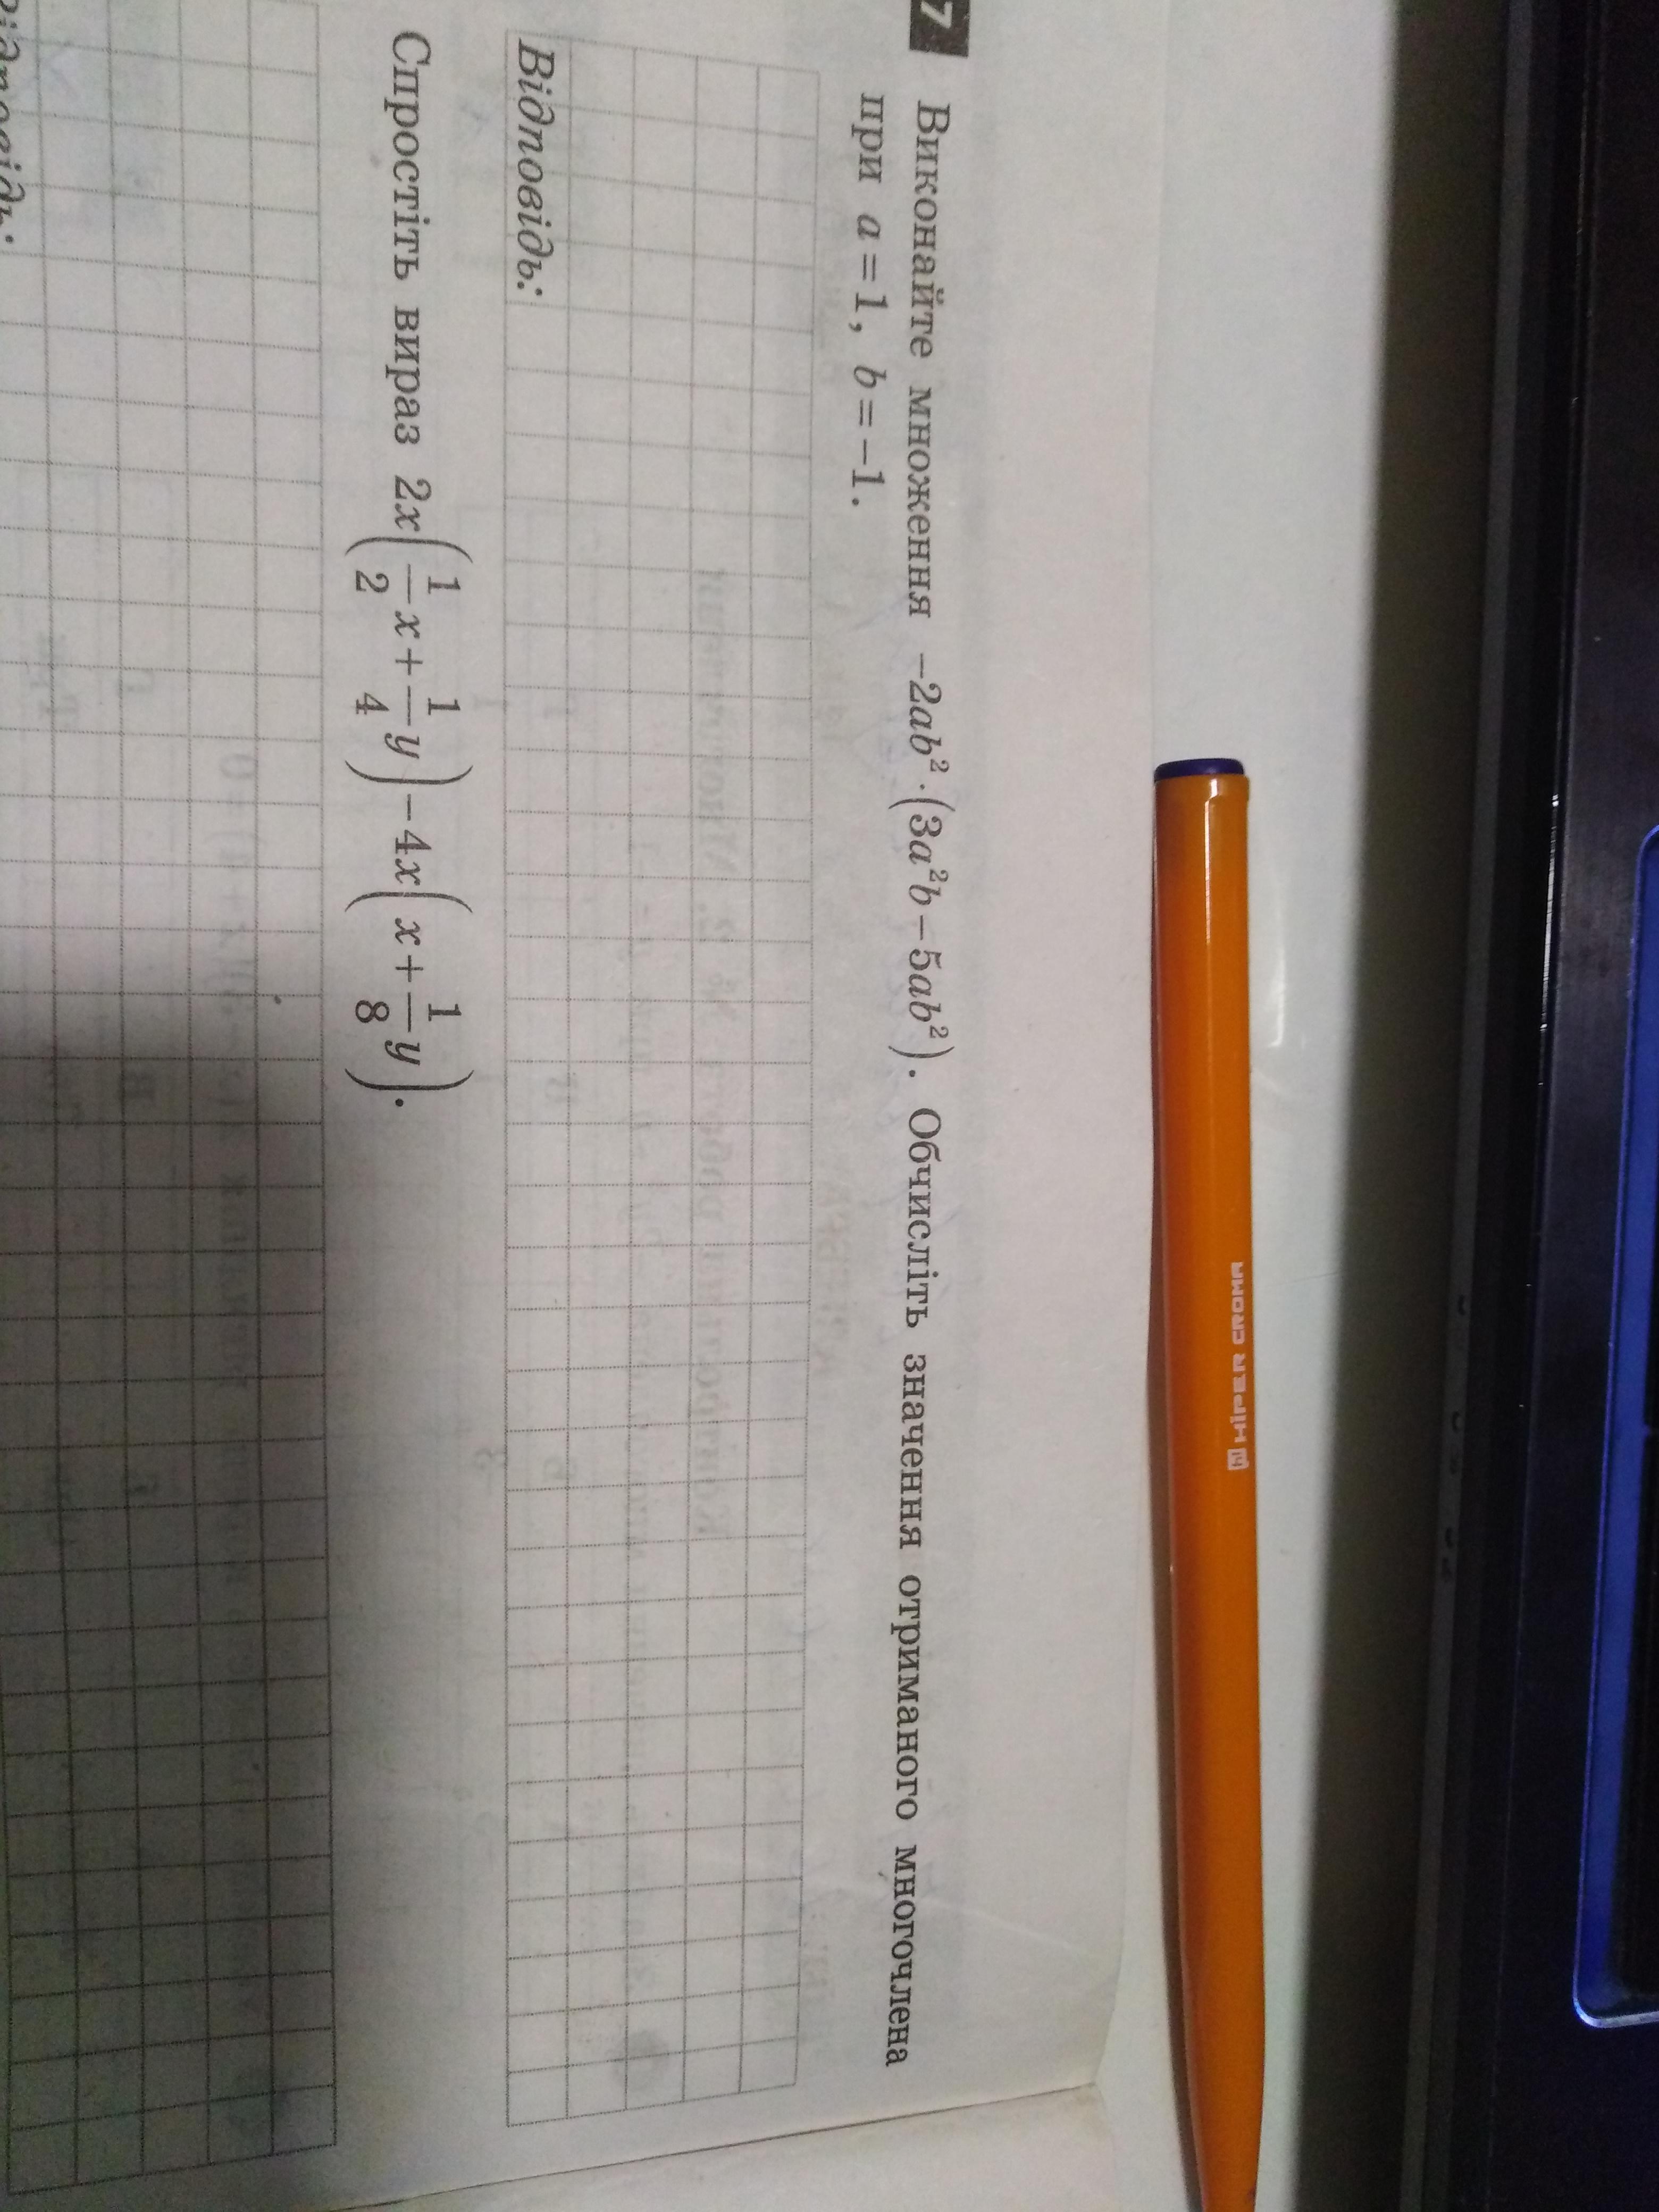 7 Виконайте множення −2ab²·(3a²b−5ab²). Обчисліть значення отриманого многочлена
при a=1, b=−1.
Відповідь:
Спростіть вираз 2x(1/2 x+1/4 y)−4x(x+1/8 y).
Відповідь:
HIPER CROMA